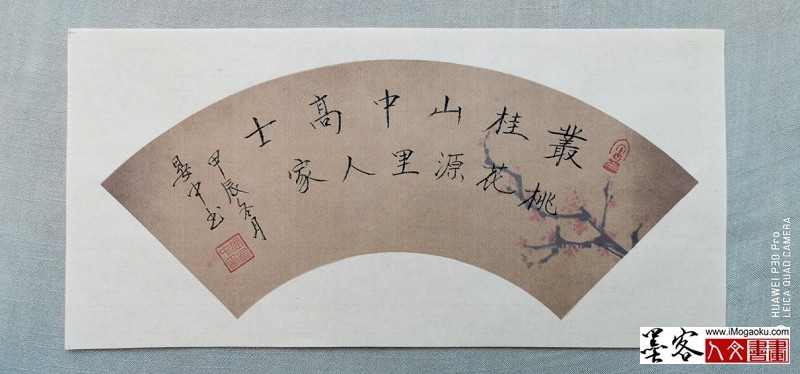 叢桂山中高士
桃花源里人家
甲辰冬月
中书
HUAWEI P30 Pro
LEICA QUAD CAMERA
www.iMogaoku.com
墨客人文書畫